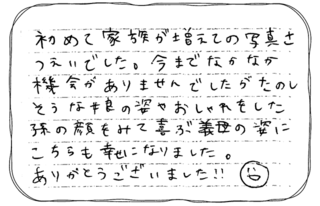 初めて家族が増えての写真さ
つえいでした。今までなかなか
機会がありませんでしたがたのし
そうな娘の姿やおしゃれをした
孫の顔をみて喜ぶ義母の姿に
こちらも幸せになりました。
ありがとうございました!!